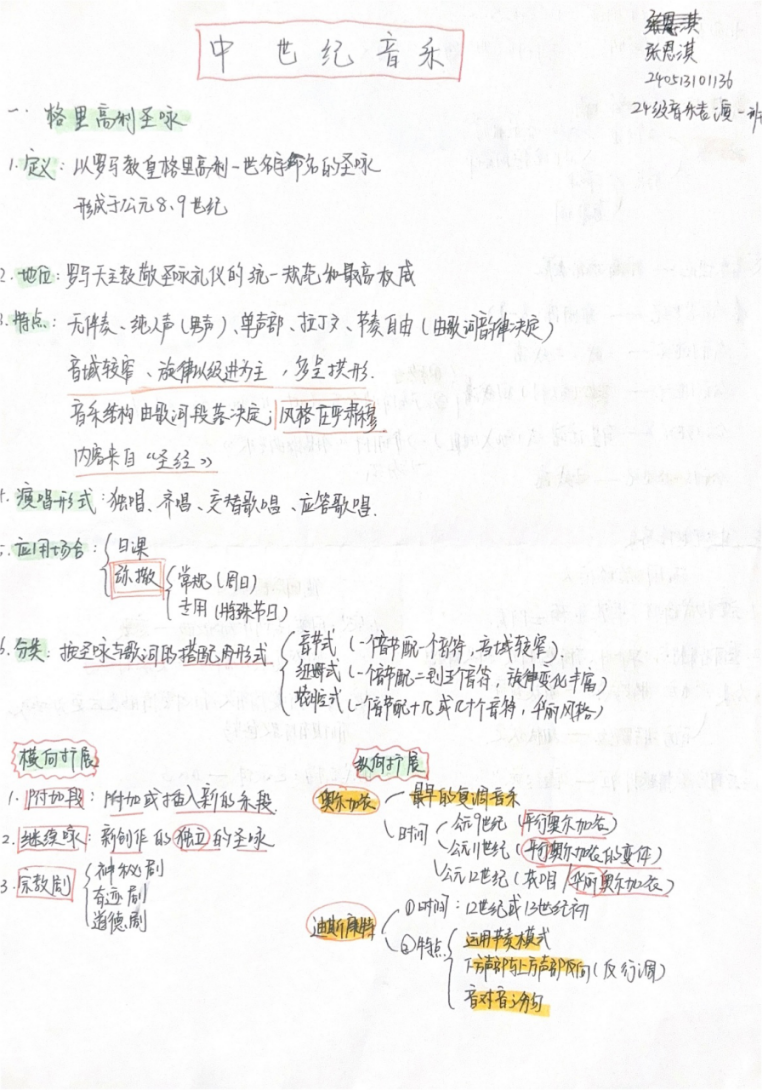 中世纪音乐
张思淇
240513101136
24级音乐表演一班
一. 格里高利圣咏
1.定义：以罗马教皇格里高利一世名字命名的圣咏
形成于公元8、9世纪
2.地位：罗马天主教散圣咏礼仪的统一规范和最高权威
3.特点：无伴奏、纯人声（男声）、单声部、拉丁文、节奏自由（由歌词韵律决定）
音域较窄、旋律以级进为主，多呈拱形.
音乐结构由歌词段落决定；风格庄严肃穆
内容来自“圣经》
4.演唱形式：独唱、齐唱、交替歌唱、应答歌唱.
5.应用场合：日课
弥撒 常规（周日）
专用（特殊节日）
6.分类：按圣咏与歌词的搭配用形式
音节式（一个音节配一个音符，音域较窄）
纽姆式（一个音节配二到五个音符，旋律变化丰富）
花唱式（一个音节配十几或几十个音符，华丽风格）
横向扩展
1. 附加段：附加或插入新的乐段
2. 继续咏：新创作的独立的圣咏
3. 宗教剧 神秘剧
奇迹剧
道德剧
纵向扩展
奥尔加农 最早的复调音乐
时间 公元9世纪（平行奥尔加农）
公元11世纪（平行奥尔加农的变体）
公元12世纪（花唱/华丽奥尔加农）
迪斯康特 ①时间：12世纪或13世纪初
②特点 运用节奏模式
下方声部与上方声部反向（反行调）
音对音分句